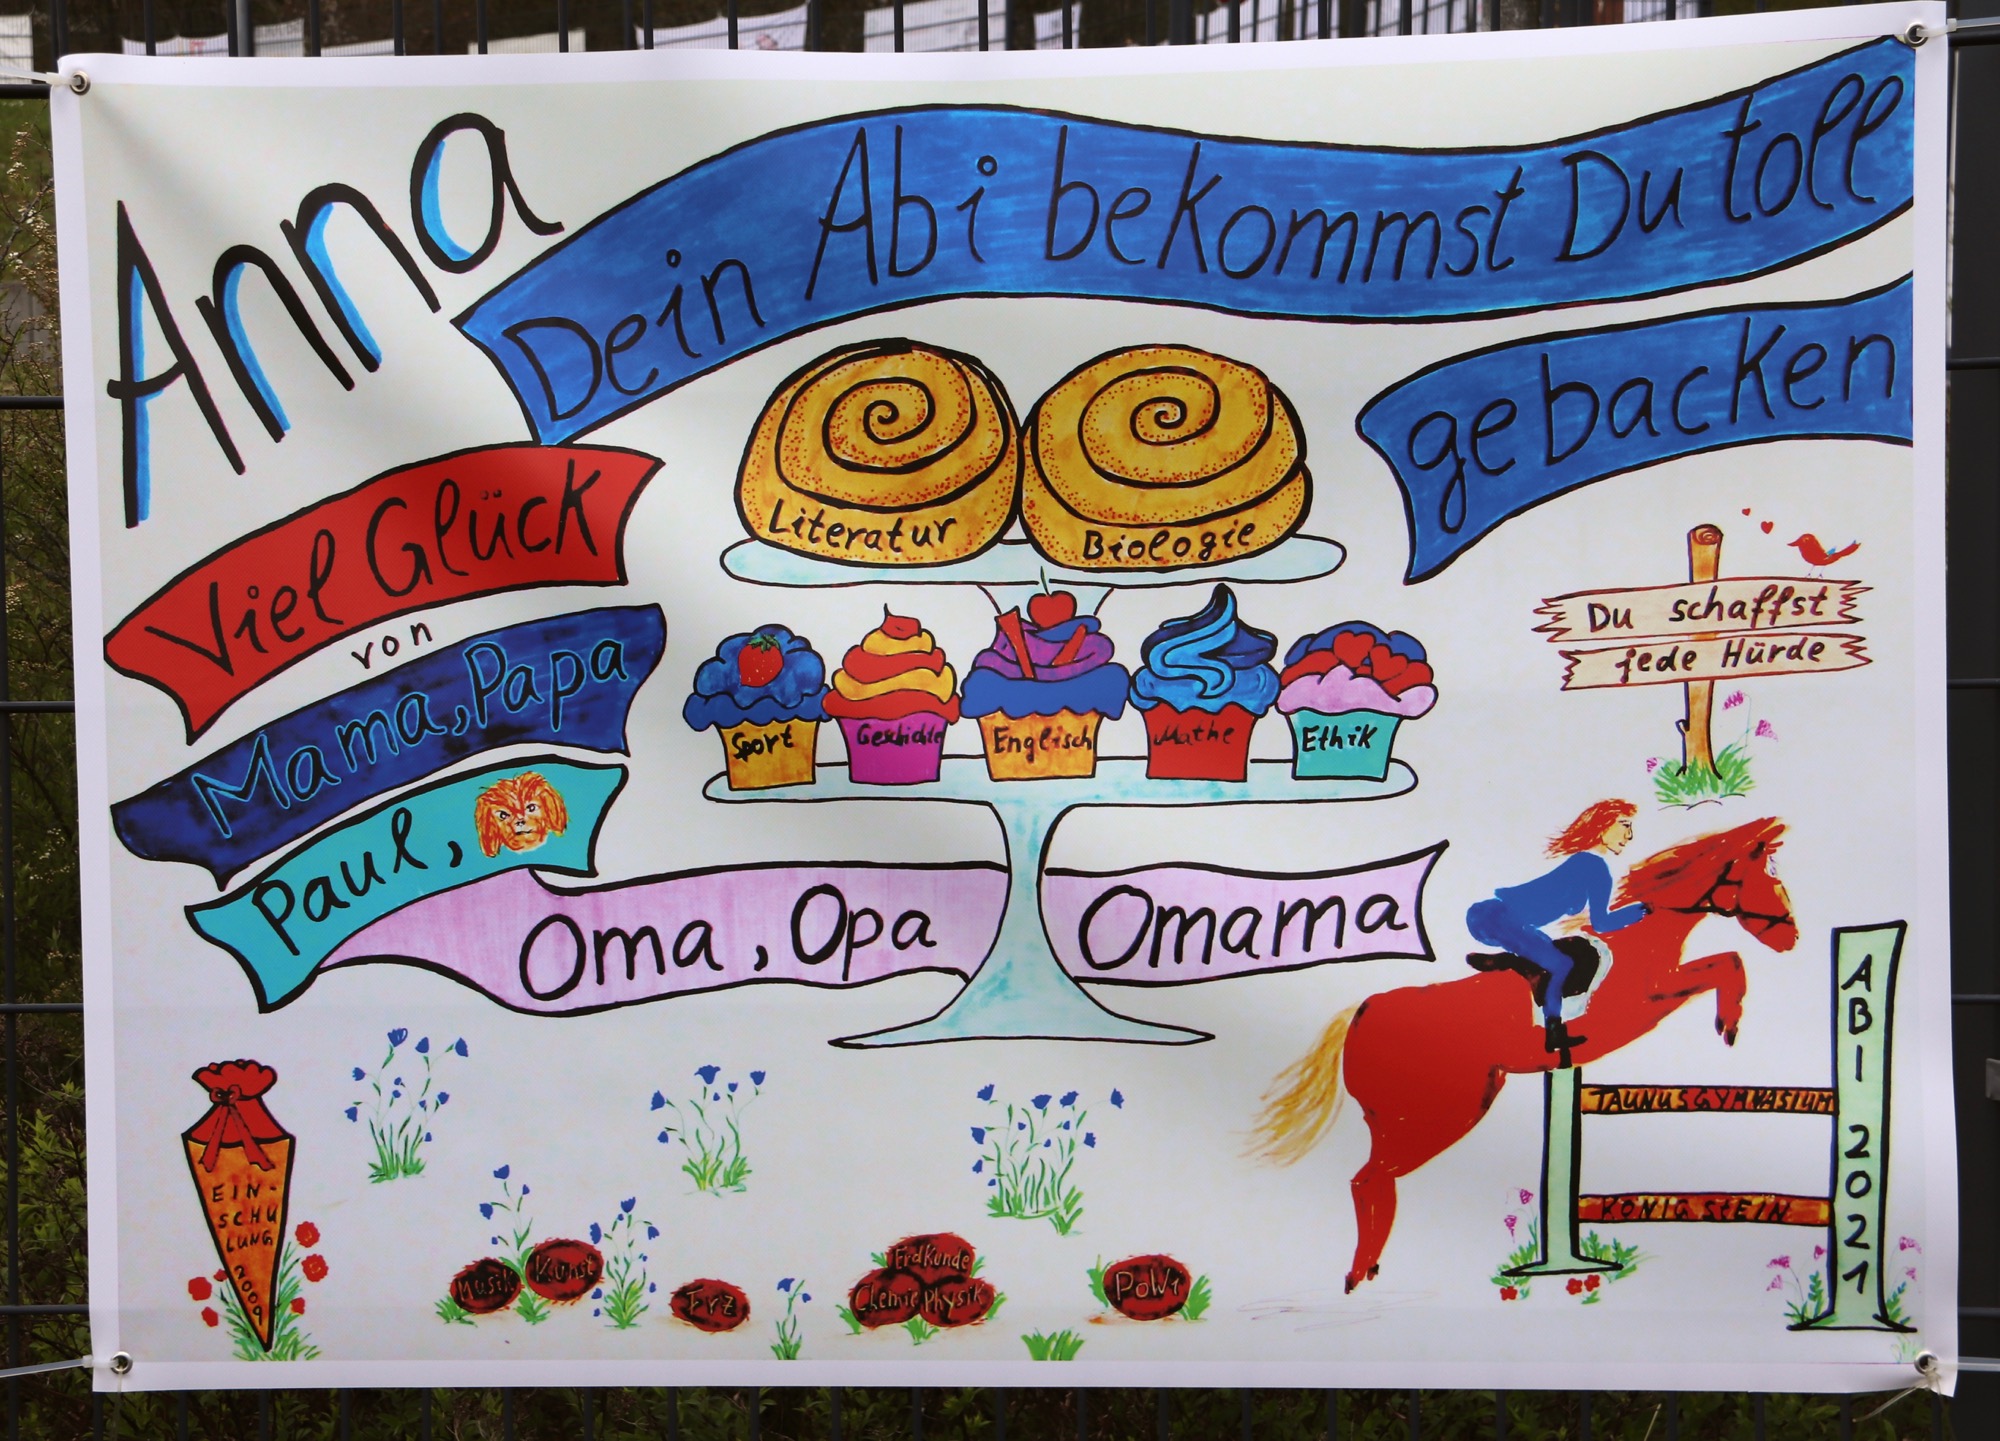 Anna
Dein Abi bekommst Du toll
gebacken
Viel Glück
von
Mama, Papa
Paul,
Oma, Opa Omama
Literatur
Biologie
Sport
Geschichte
Englisch
Mathe
Ethik
Du schaffst
jede Hürde
ABI 2021
TAUNUSGYMNASIUM
KÖNIGSTEIN
EIN-
SCHU
LUNG
2009
Musik
Kunst
Frz
Erdkunde
Chemie
Physik
PoWi